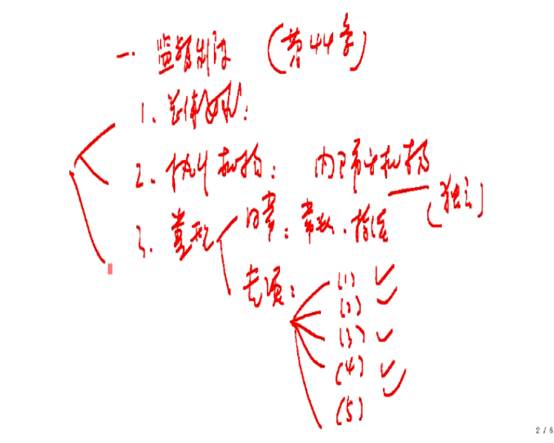 一、监督制度 (基44条)
1、总体要求:
2、执行机构: 内部审计机构 (独立)
3、类型 日常:常规、持续
专项: (1) ✓
(2) ✓
(3) ✓
(4) ✓
(5)
2 / 6